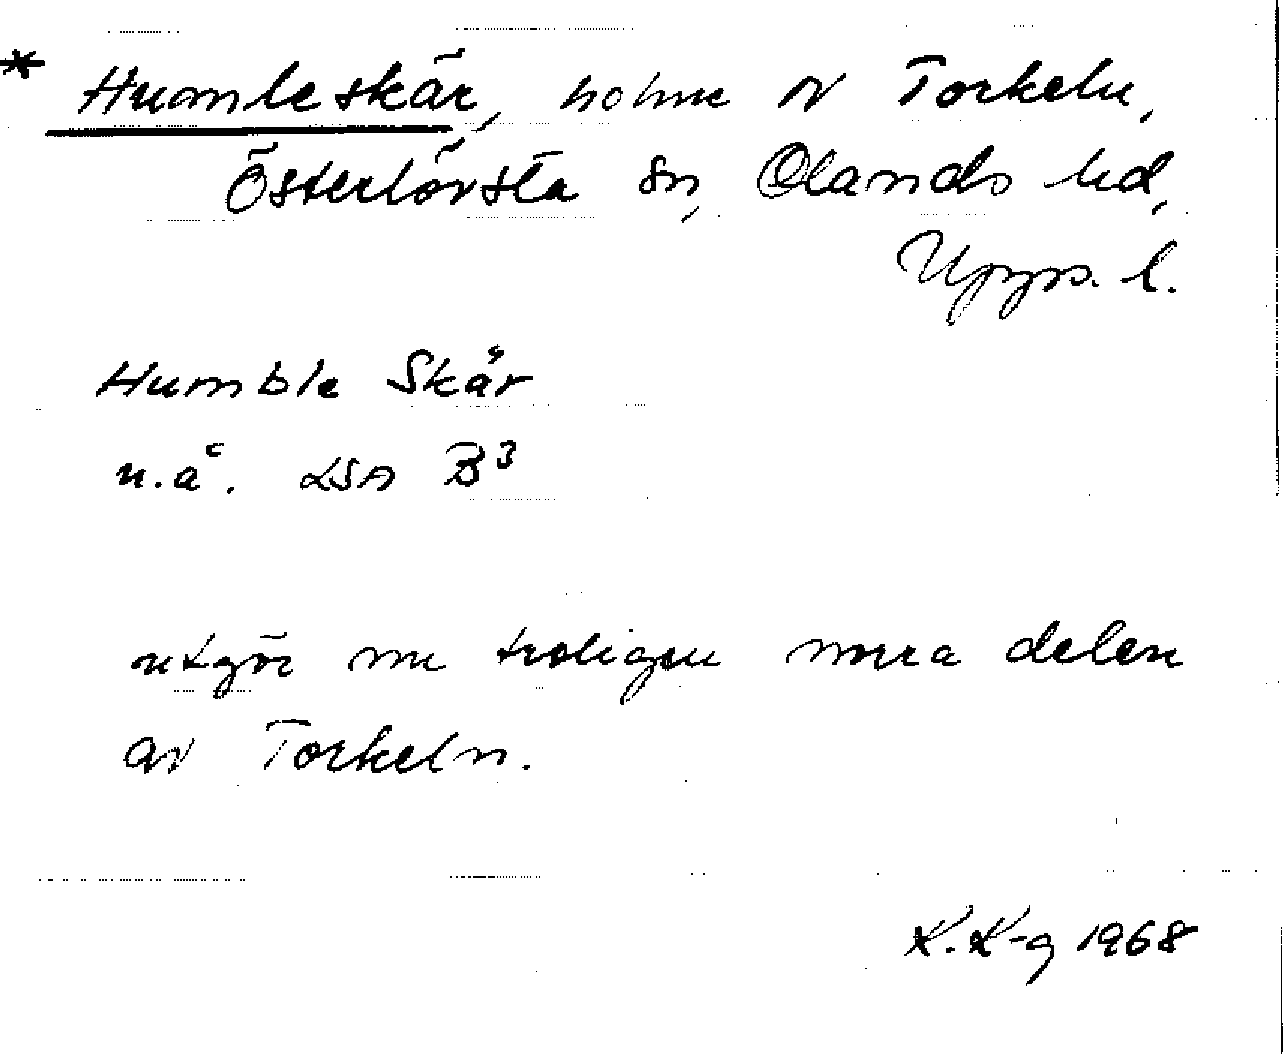 * Humleskär, holme N Torkeln,
Österlövsta sn, Olands hd,
Upps. l.
Humble Skär
n.ä. LSA B3
utgör nu troligen norra delen
av Torkeln.
K. K-g 1968